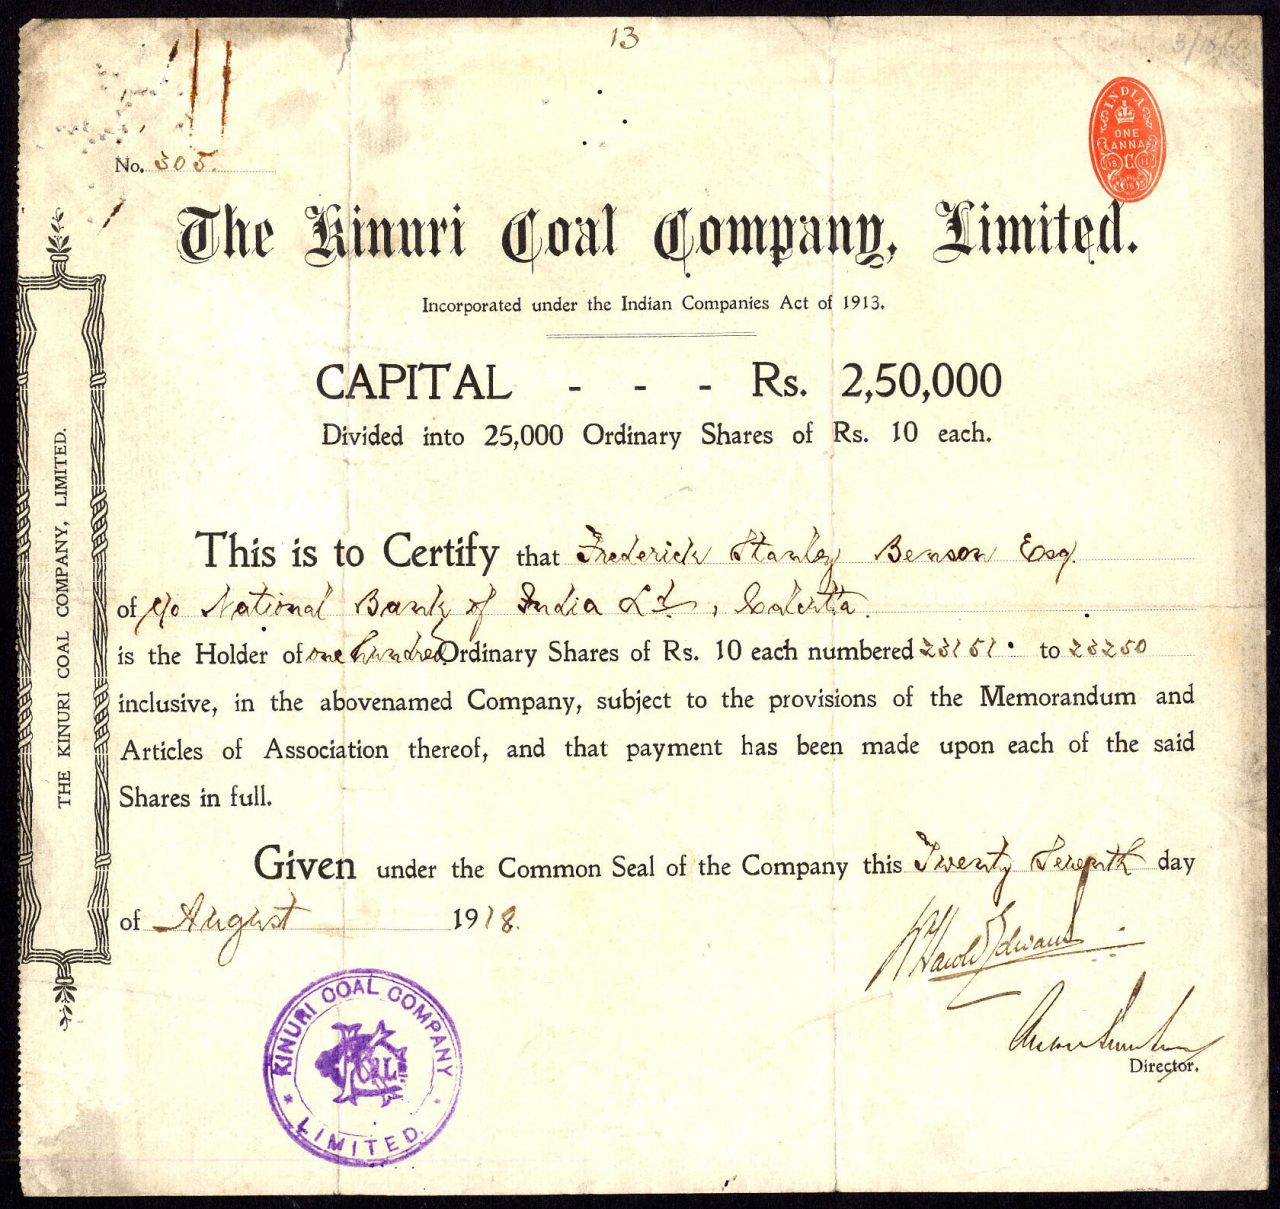 13
No. 305.
INDIA
ONE
ANNA
The Kinuri Coal Company, Limited.
Incorporated under the Indian Companies Act of 1913.
CAPITAL - - - Rs. 2,50,000
Divided into 25,000 Ordinary Shares of Rs. 10 each.
THE KINURI COAL COMPANY, LIMITED.
This is to Certify that Frederick Stanley Benson Esq.
of c/o National Bank of India Ld, Calcutta.
is the Holder of one hundred Ordinary Shares of Rs. 10 each numbered 23151 to 23250
inclusive, in the abovenamed Company, subject to the provisions of the Memorandum and
Articles of Association thereof, and that payment has been made upon each of the said
Shares in full.
Given under the Common Seal of the Company this Twenty Seventh day
of August 1918.
Director.
KINURI COAL COMPANY
LIMITED.